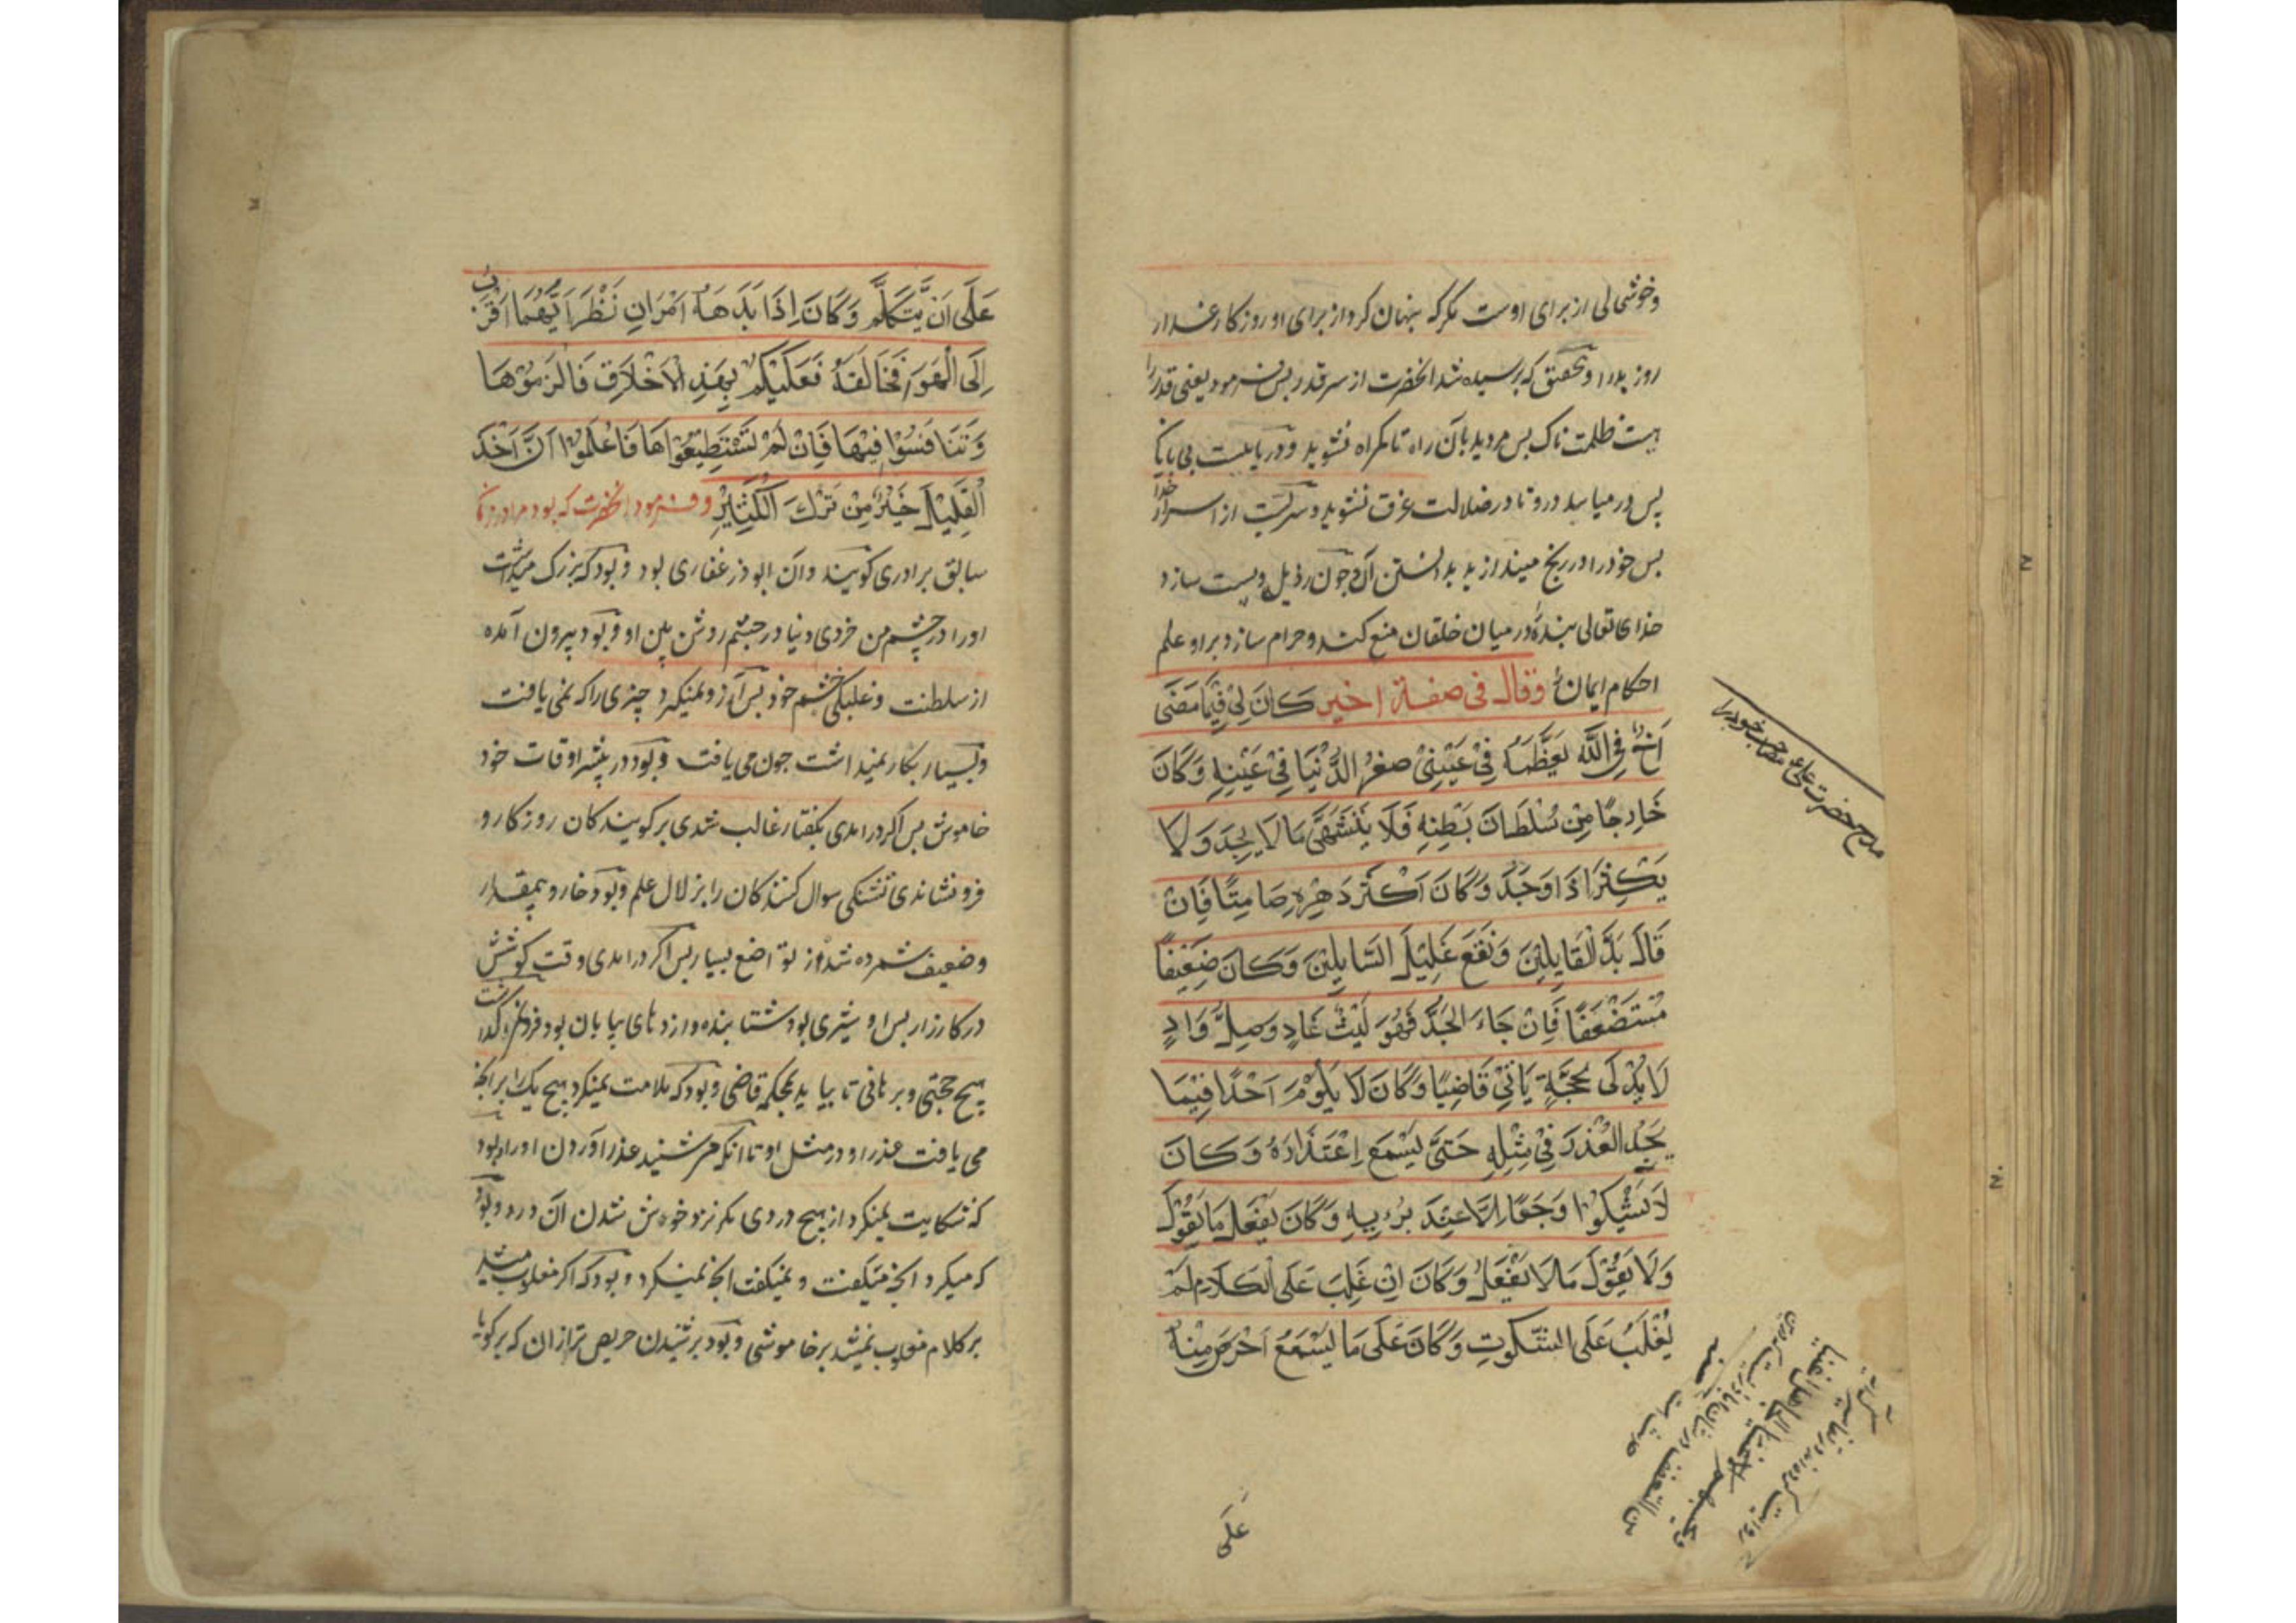 وخوشی لی از برای اوست مکر که پنهان کرد از برای او روزکار غدار
روز بدرا و تحقیق که پرسیده شد انحضرت از سر قدر پس فرمود یعنی قدر را
هیست ظلمت ناک پس مروید بآن راه تا کمراه نشوید و دریاییست بی پایان
پس در میایید درو تا در ضلالت غرق نشوید و سریست از اسرار خدا
پس خود را در رنج میندازید بدانستن آن و جون رذیل و پست سازد
خدای تعالی بندهٔ در میان خلقان منع کند و حرام سازد بر او علم
احکام ایمان وقال فی صفة اخیر كَانَ لِیْ فِیْمَا مَضَی
اَخٌ فِی اللّه یُعَظِّمُهُ فِیْ عَیْنِیْ صغرُ الدُّنْیَا فِیْ عَیْنِهِ وَكَانَ
خَارِجًا مِنْ سُلْطَانِ بَطْنِهِ فَلَا یَتَشَهَّی مَا لَا یَجِدُ وَلَا
یَكْثِرُ اذَا وَجَدَ وَكَانَ اَكْثَرَ دَهْرِهِ صَامِتًا فَاِنْ
قَالَ بَذَّ الْقَایِلِیْنَ وَنَقَعَ غَلِیْلَ السَّایِلِیْنَ وَكَانَ ضَعِیْفًا
مُسْتَضْعَفًا فَاِنْ جَاءَ الْجَدُّ فَهُوَ لَیْثُ غَادٍ وَصِلُّ وَادٍ
لَا یُدْلِی بِحُجَّةٍ یَاتِیْ قَاضِیًا وَكَانَ لَا یَلُوْمُ اَحْدًا فِیْمَا
یَجِدُ الْعُذْرَ فِیْ مِثْلِهِ حَتَّی یَسْمَعَ اِعْتِذَارَهُ وَكَانَ
لَا یَشْكُوْا وَجَعًا اِلَّا عِنْدَ بُرْیِهِ وَكَانَ یَفْعَلُ مَا یَقُوْلُ
وَلَا یَقُوْلُ مَا لَا یَفْعَلُ وَكَانَ اِنْ غَلِبَ عَلَی الْكَلَامِ لَمْ
یُغْلَبْ عَلَی السُّكُوتِ وَكَانَ عَلَی مَا یَسْمَعُ اَحْرَصَ مِنْهُ
عَلَی
مدح حضرت علی ع مصاحب خود را
عَلَی اَنْ یَّتَكَلَّمَ وَكَانَ اِذَا بَدَهَهُ اَمْرَانِ نَظَرَ اَیُّهُمَا اَقْرَبُ
اِلَی الْهَوَی فَخَالَفَهُ فَعَلَیْكُمْ بِهَذِهِ الْاَخْلَاقِ فَالْزَمُوْهَا
وَتَنَافَسُوْا فِیْهَا فَاِنْ لَمْ تَسْتَطِیْعُوْاهَا فَاعْلَمُوْا اَنَّ اَخْذَ
الْقَلِیْلِ خَیْرٌ مِنْ تَرْكِ الْكَثِیْرِ و فرمود انحضرت که بود مرا در زمان
سابق برادری کویند و آن ابوذر غفاری بود و بود که بزرک میداشت
او را در چشم من خردی دنیا در جشم روشن بین او و بود بیرون آمده
از سلطنت و غلبکی خشم خود پس آرزو نمیکرد چیزی را که نمی یافت
و بسیار بکار نمیداشت جون می یافت و بود در بیشتر اوقات خود
خاموش پس اکر در امدی بکفتار غالب شدی بر کویندکان روزکار و
فرو نشاندی تشنکی سوال کنندکان را بزلال علم و بود خار و بیمقدار
و ضعیف شمرده شده از تواضع بسیار پس اکر در امدی وقت کوشش
در کارزار پس او شیری بود شتابنده و از دهای بیابان بود فرو نمیکذاشت
هیچ حجتی و برهانی تا بیاید بمحکمه قاضی و بود که ملامت نمیکرد هیچ یک را بر انچه
می یافت عذر او در مثل او تا انکه می شنید عذر آوردن او را و بود
که شکایت نمیکرد از هیچ دردی مکر نزد خوش شدن آن درد و بود
که میکرد انچه میکفت و نمیکفت انچه نمیکرد و بود که اکر مغلوب میشد
بر کلام مغلوب نمیشد بر خاموشی و بود بر شنیدن حریص تر از ان که بر کویا